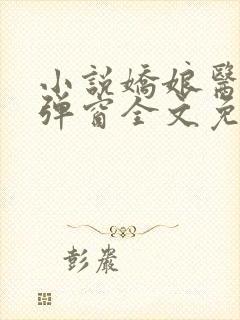 小說嬌娘醫
彈窗全文免
彭嚴